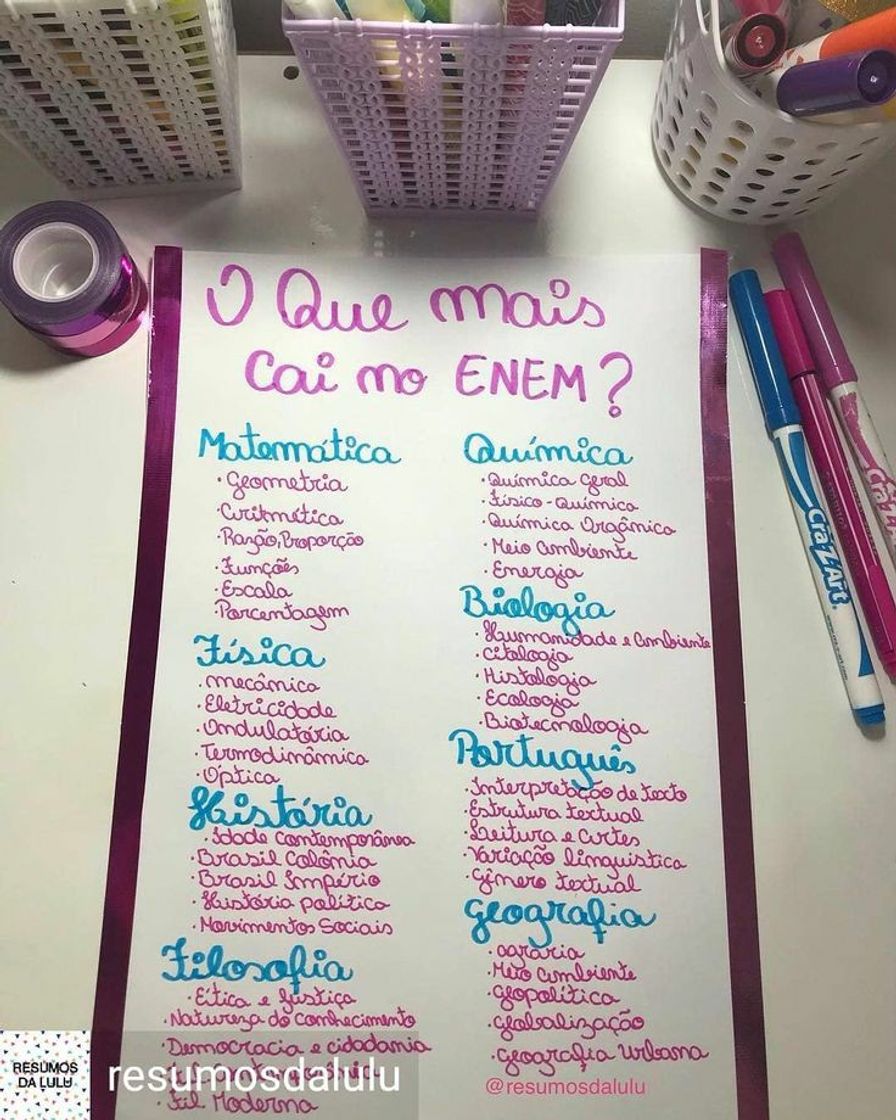 O Que mais
Cai no ENEM?
Matemática
• Geometria
• Aritmética
• Razão, Proporção
• Funções
• Escala
• Porcentagem
Física
• mecânica
• Eletricidade
• Ondulatória
• Termodinâmica
• Óptica
História
• Idade Contemporânea
• Brasil Colônia
• Brasil Império
• História política
• Movimentos Sociais
Filosofia
• Ética e Justiça
• Natureza do conhecimento
• Democracia e cidadania
• Fil Moderna
Química
• Química Geral
• Físico-Química
• Química Orgânica
• Meio Ambiente
• Energia
Biologia
• Humanidade e Ambiente
• Citologia
• Histologia
• Ecologia
• Biotecnologia
Português
• Interpretação de texto
• Estrutura textual
• Leitura e Artes
• Variação linguistica
• Gênero textual
Geografia
• agrária
• Meio Ambiente
• Geopolítica
• Globalização
• Geografia Urbana
@resumosdalulu
Cra-Z-Art
Cra-Z-Art
RESUMOS
DA LULU
resumosdalulu